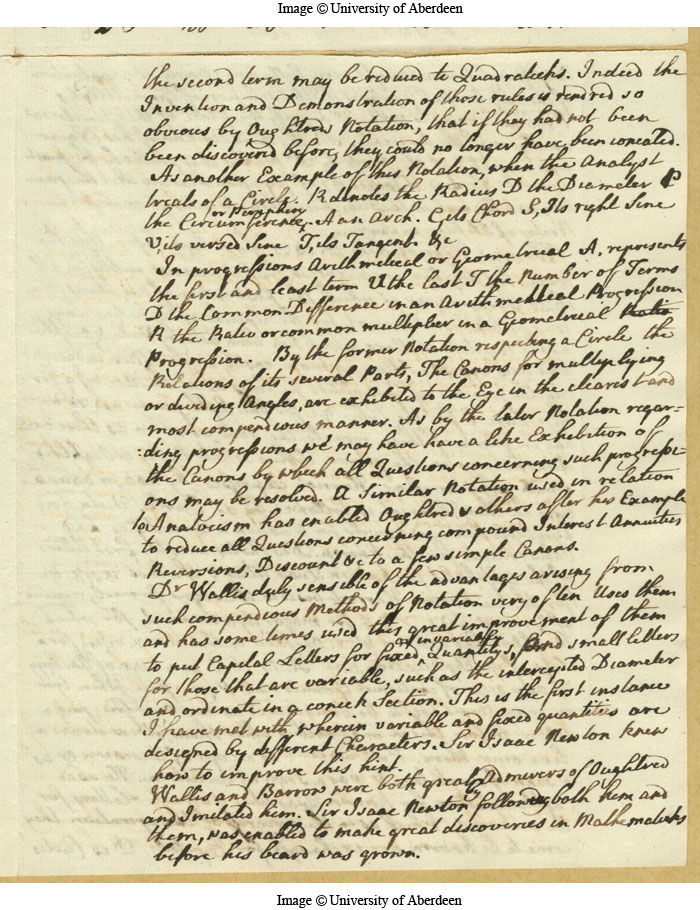 Image © University of Aberdeen
the second term may be reduced to Quadraticks. Indeed the
Invention and Demonstration of those rules is rendred so
obvious by Oughtreds Notation, that if they had not been
been discovered before, they could no longer have been concealed.
As another Example of this Notation, when the Analyst
treats of a Circle. R denotes the Radius D the Diameter P
or Periphery
the Circumference, A an Arch. C, its Chord S, Its right Sine
V, its versed Sine T, its Tangent. &c
In progressions Arithmetical or Geometrical A. represents
the first and least term U the last T the Number of Terms
D the Common Difference in an Arithmetical Progression
R the Ratio or common multiplier in a Geometrical Ratio
Progression. By the former Notation respecting a Circle the
Relations of its several Parts, The Canons for multiplying
or dividing Angles, are exhibited to the Eye in the clearest and
most compendious manner. As by the later Notation regar=
:ding progressions we may have have a like Exhibition of
the Canons by which all Questions concerning such progressi=
ons may be resolved. A Similar Notation used in relation
to Anatocism has enabled Oughtred & others after his Example
to reduce all Questions concerning compound Interest Annuities
Reversions, Discount &c to a few simple Canons.
Dr Wallis duly sensible of the advantages arising from
such compendious Methods of Notation very often Uses them
and has some times used this great improvement of them
and invariable
to put Capital Letters for fixed Quantitys, and small letters
for those that are variable, such as the intercepted Diameter
and ordinate in a conick Section. This is the first instance
I have met with wherein variable and fixed quantities are
designed by different Characters. Sir Isaac Newton knew
how to improve this hint.
Wallis and Barrow were both great Admirers of Oughtred
and Imitated him. Sir Isaac Newton following both him and
them, was enabled to make great discoveries in Mathematicks
before his beard was grown.
Image © University of Aberdeen